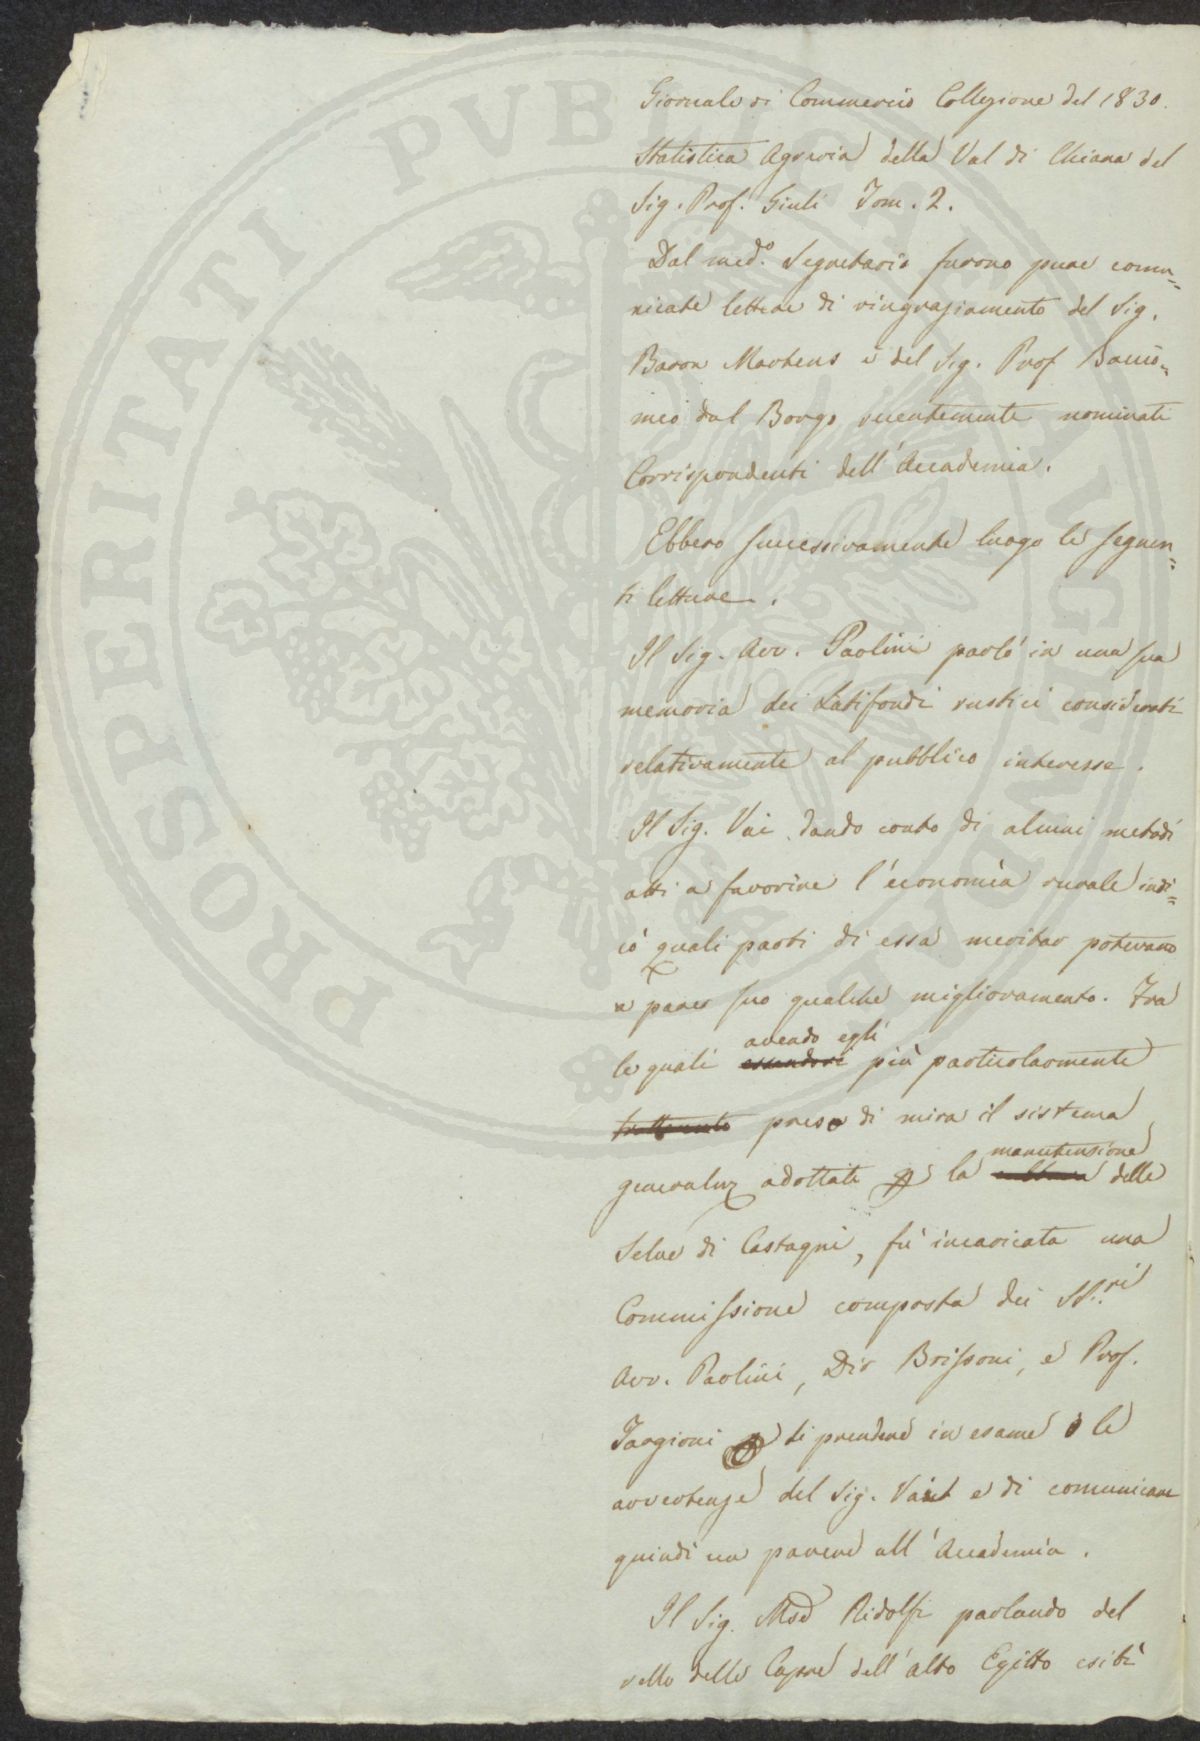 Giornale di Commercio Collezione del 1830.
Statistica Agraria della Val di Chiana del
Sig. Prof. Giuli Tom. 2.
Dal med.º Segretario furono pure comu=
nicate lettere di ringraziamento del Sig.
Baron Martens e del Sig. Prof
meo dal Borgo recentemente nominati
Corrispondenti dell'Accademia.
Ebbero successivamente luogo le seguen=
ti letture.
Il Sig. Avv. Paolini parlò in una sua
memoria dei Latifondi rustici considerati
relativamente al pubblico interesse.
Il Sig. Vai dando conto di alcuni metodi
atti a favorire l'economia rurale indi=
cò quali parti di essa meritar potevano
a parer suo qualche miglioramento. Tra
avendo egli
le quali essendosi più particolarmente
trattenuto preso di mira il sistema
manutensione
generalm. adottato la cultura delle
Selve di Castagni, fù incaricata una
Commissione composta dei SS.ri
Avv. Paolini, Dir Brissoni, e Prof.
Targioni di prendere in esame le
avvertenze del Sig. Vai e di comunicare
quindi un parere all'Accademia.
Il Sig. Mse Ridolfi parlando del
vello delle Capre dell'alto Egitto esibì
PROSPERITATI PVBLICAE AVGENDAE